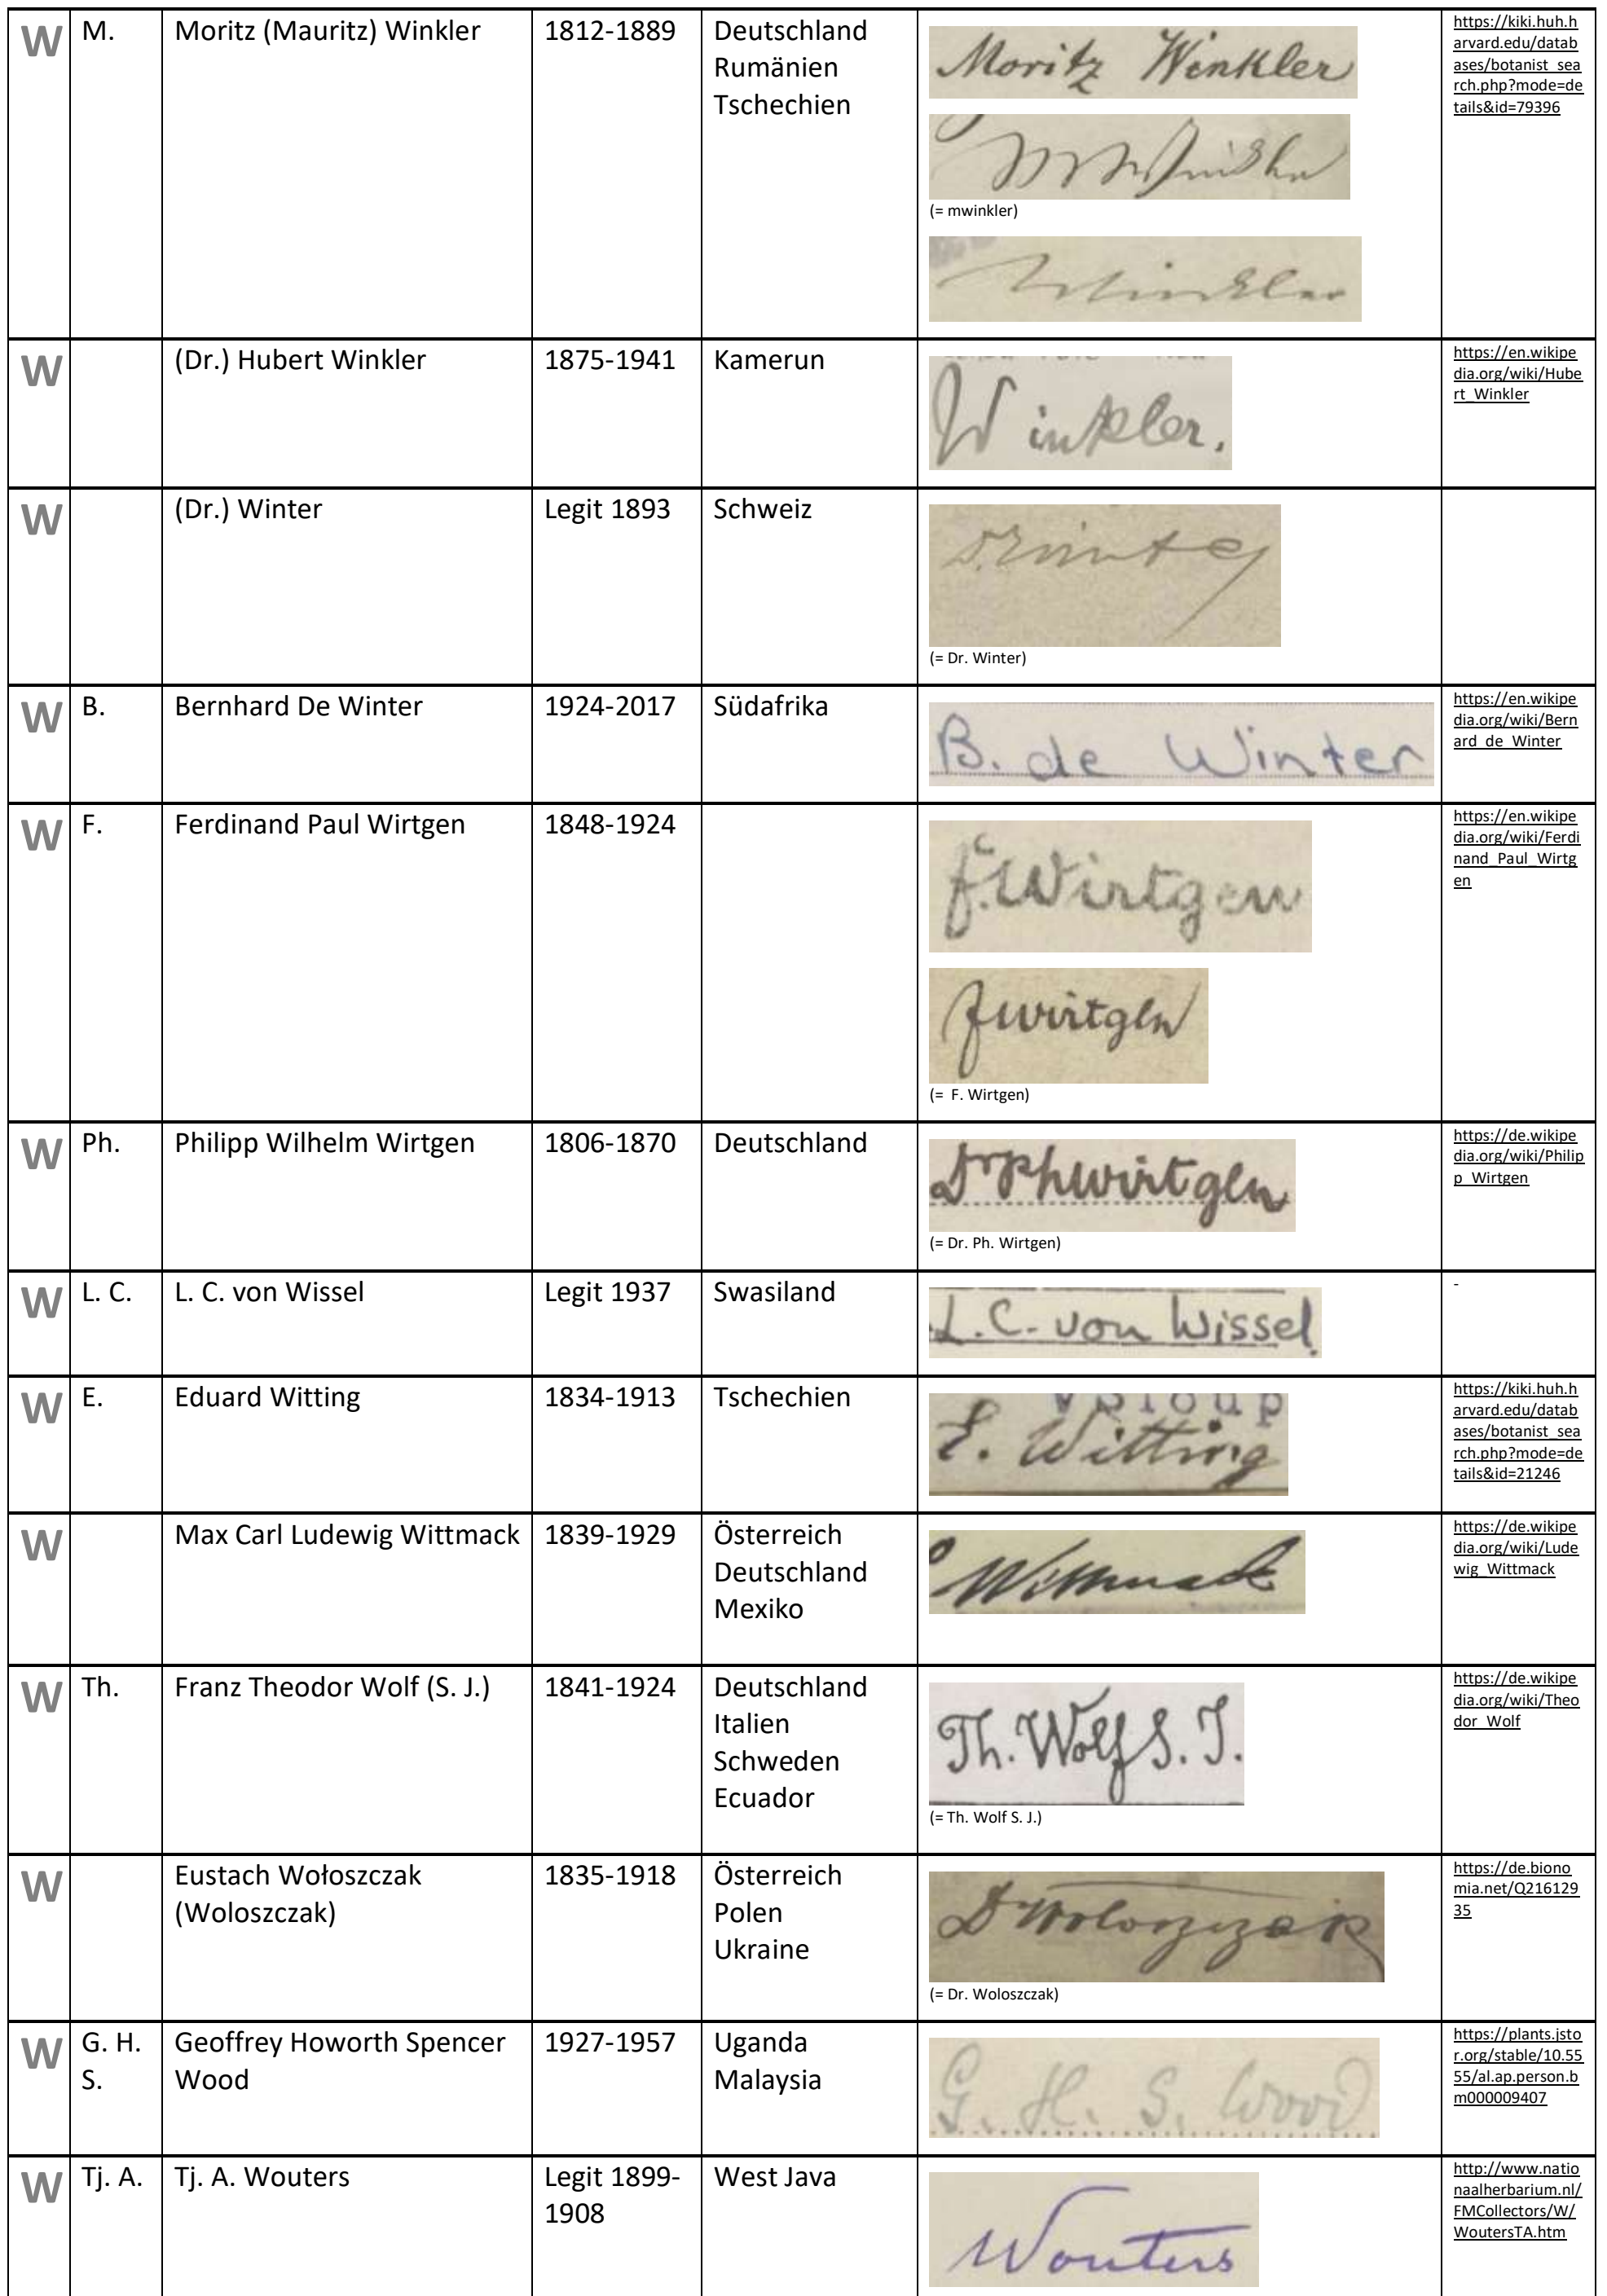 W M. Moritz (Mauritz) Winkler 1812-1889 Deutschland
Rumänien
Tschechien
Moritz Winkler
(= mwinkler)
Winkler
https://kiki.huh.h
arvard.edu/datab
ases/botanist_sea
rch.php?mode=de
tails&id=79396
W (Dr.) Hubert Winkler 1875-1941 Kamerun
Winkler.
https://en.wikipe
dia.org/wiki/Hube
rt_Winkler
W (Dr.) Winter Legit 1893 Schweiz
Dr. Winter
(= Dr. Winter)
W B. Bernhard De Winter 1924-2017 Südafrika
B. de Winter
https://en.wikipe
dia.org/wiki/Bern
ard_de_Winter
W F. Ferdinand Paul Wirtgen 1848-1924
F. Wirtgen
FWirtgen
(= F. Wirtgen)
https://en.wikipe
dia.org/wiki/Ferdi
nand_Paul_Wirtg
en
W Ph. Philipp Wilhelm Wirtgen 1806-1870 Deutschland
Dr Ph Wirtgen
(= Dr. Ph. Wirtgen)
https://de.wikipe
dia.org/wiki/Philip
p_Wirtgen
W L. C. L. C. von Wissel Legit 1937 Swasiland
L. C. von Wissel
-
W E. Eduard Witting 1834-1913 Tschechien
E. Witting
https://kiki.huh.h
arvard.edu/datab
ases/botanist_sea
rch.php?mode=de
tails&id=21246
W Max Carl Ludewig Wittmack 1839-1929 Österreich
Deutschland
Mexiko
Wittmack
https://de.wikipe
dia.org/wiki/Lude
wig_Wittmack
W Th. Franz Theodor Wolf (S. J.) 1841-1924 Deutschland
Italien
Schweden
Ecuador
Th. Wolf S. J.
(= Th. Wolf S. J.)
https://de.wikipe
dia.org/wiki/Theo
dor_Wolf
W Eustach Wołoszczak 1835-1918 Österreich
(Woloszczak) Polen
Ukraine
Dr Woloszczak
(= Dr. Woloszczak)
https://de.biono
mia.net/Q216129
35
W G. H. Geoffrey Howorth Spencer 1927-1957 Uganda
S. Wood Malaysia
G. H. S. Wood
https://plants.jsto
r.org/stable/10.55
55/al.ap.person.b
m000009407
W Tj. A. Tj. A. Wouters Legit 1899- West Java
1908
Wouters
http://www.natio
naalherbarium.nl/
FMCollectors/W/
WoutersTA.htm